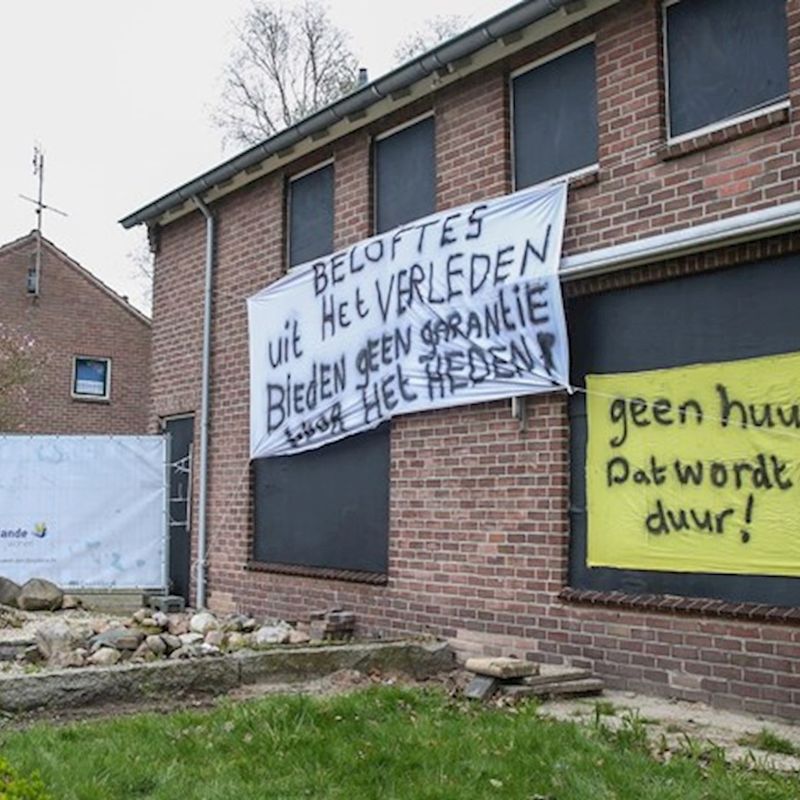 BELOFTES
uit Het VERLEDEN
BiEDEN gEEN gARANtiE
VOOR HEt HEDEN!
geen huu
Dat wordt
duur!
ande
wonen